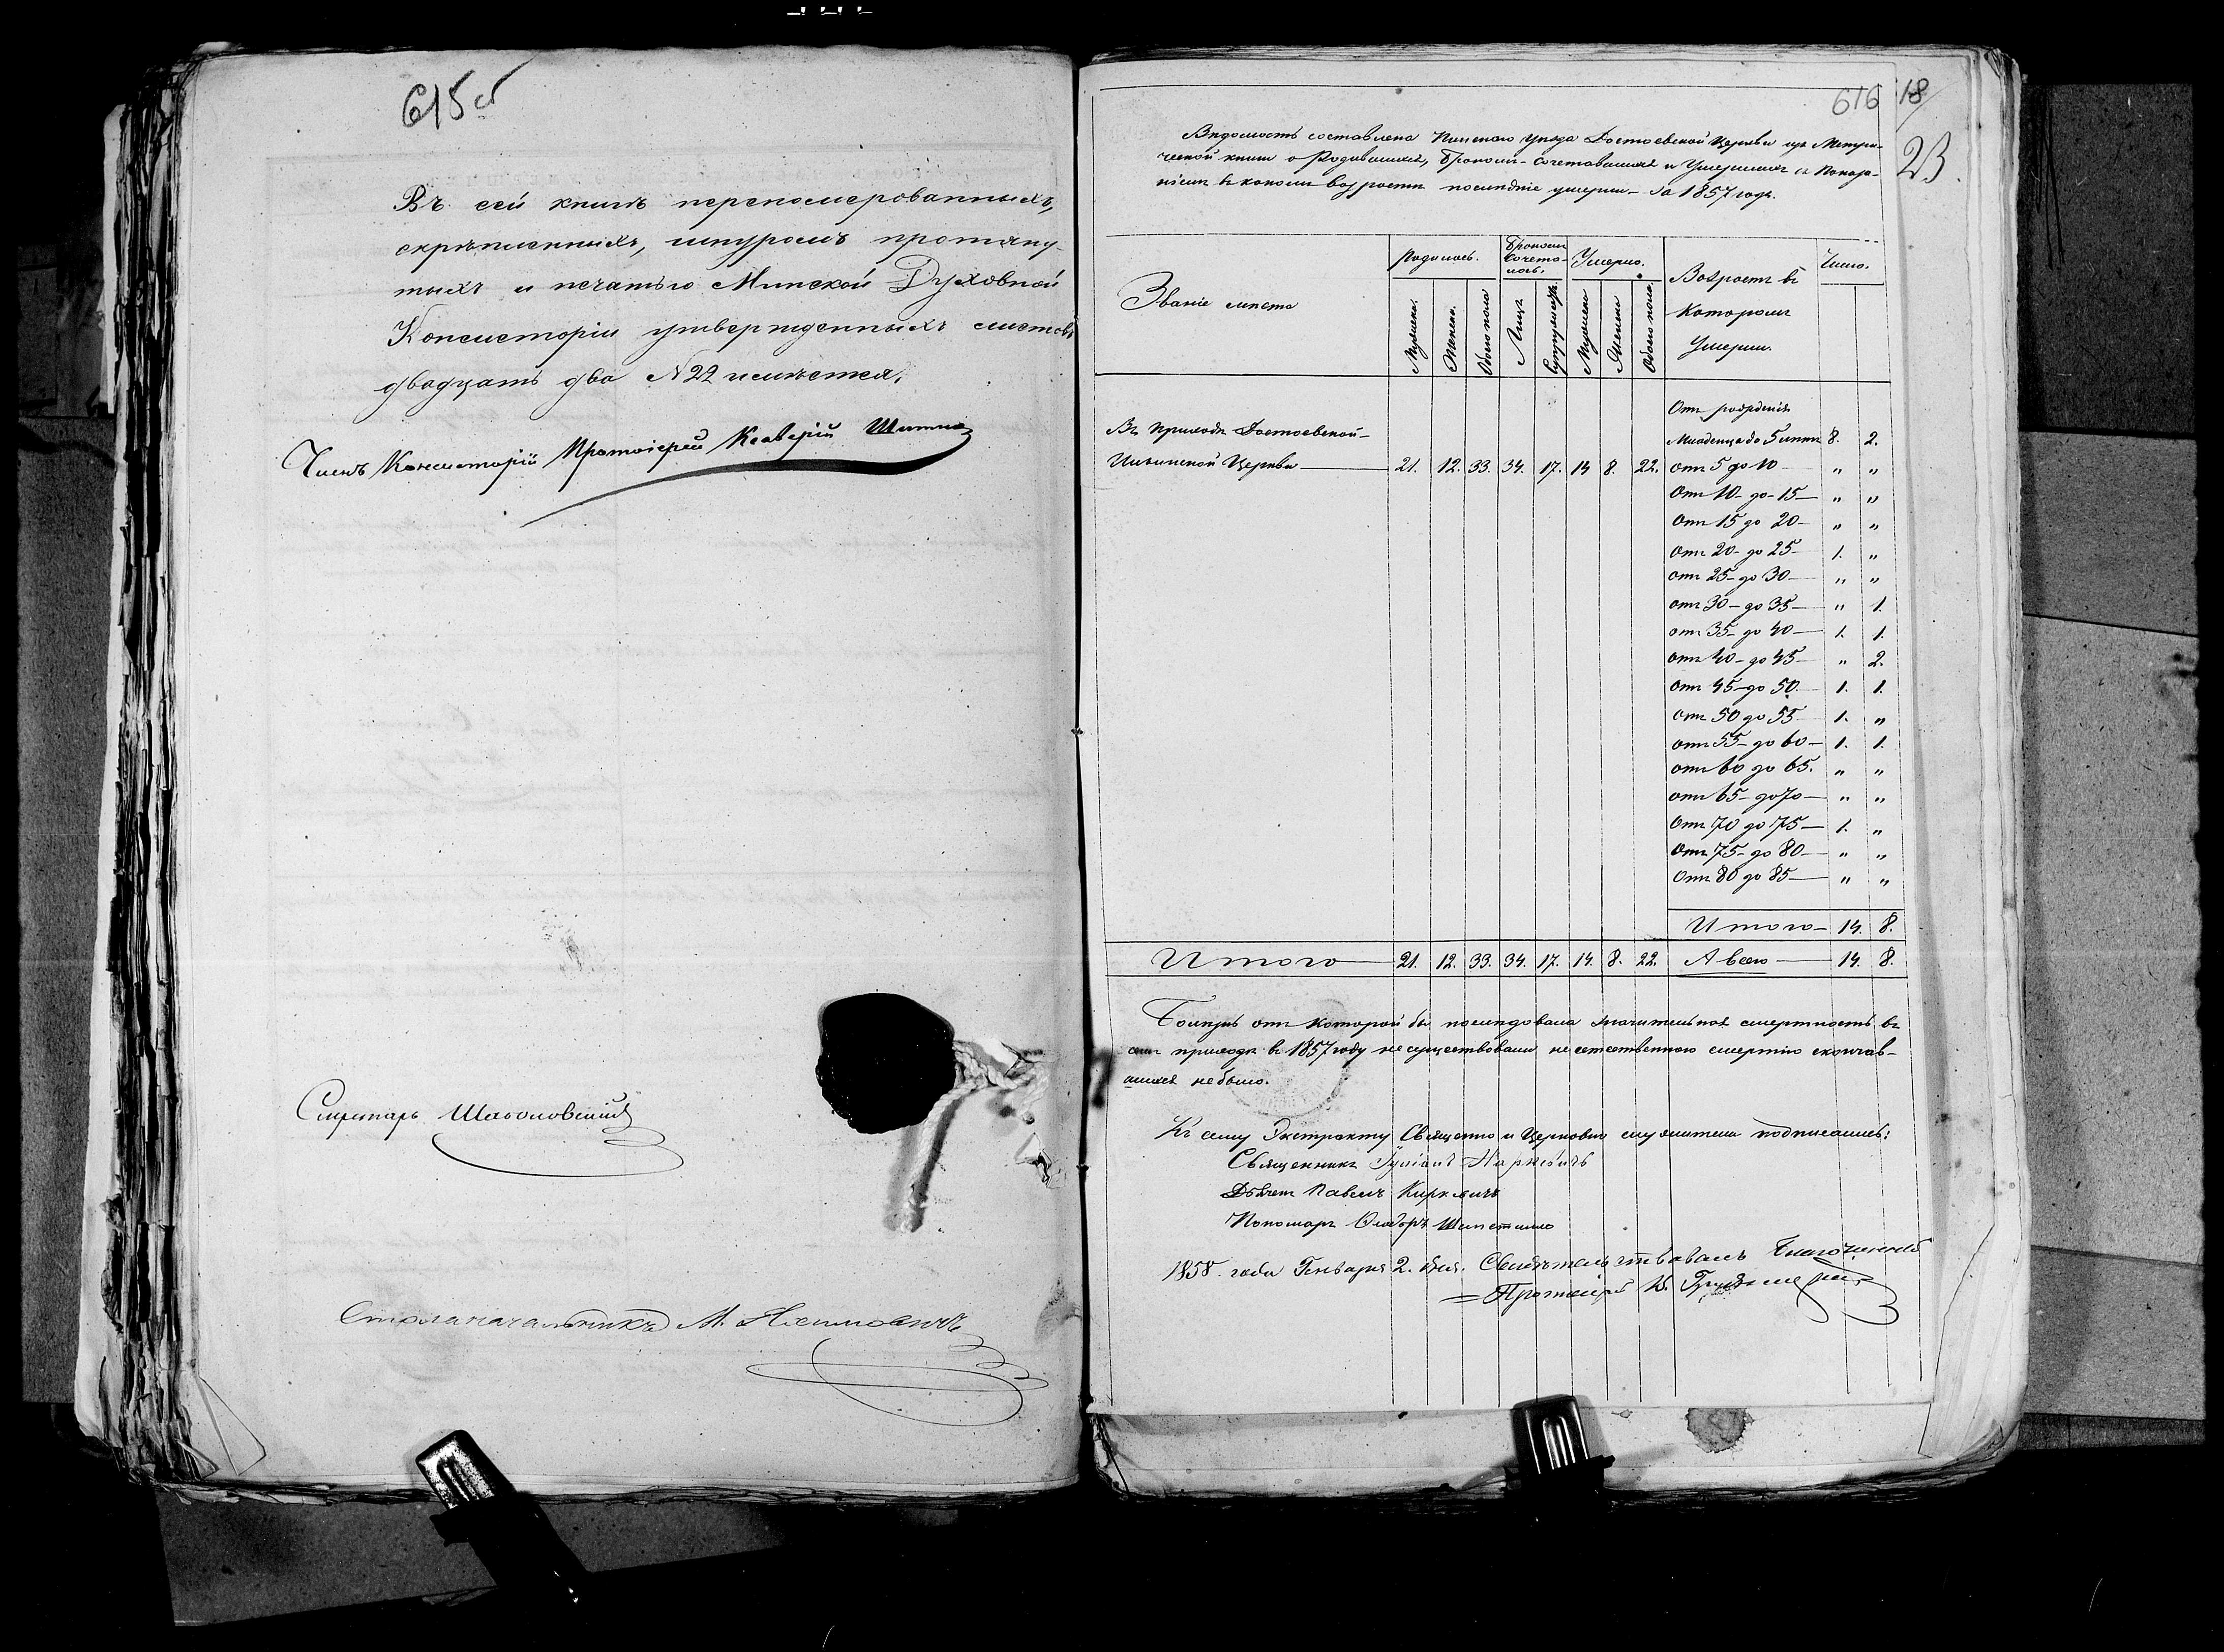 615 об
Въ сей книгѣ переномерованныхъ,
скрѣпленныхъ, шнуромъ протяну-
тыхъ и печатью Минской Духовной
Консисторіи утвержденныхъ листовъ
двадцать два N 22 имѣется.
Членъ Консисторіи Протоіерей Ксаверій
Секретарь
Столоначальникъ М.
616 18
23.
Вѣдомость составлена Пинскаго уѣзда Достоевской Церкви изъ Метри-
ческой книги о Родившихся, бракомъ-сочетавшихся и Умершихъ съ показа-
ніемъ въ какомъ возрастѣ послѣдніе умерли - за 1857 годъ.
Званіе мѣста
Родилось.
Бракомъ
Сочета-
лось.
Умерло.
Возрастъ въ
Которомъ
Умерли.
Число.
Мужеска.
Женска.
Обоего пола
Лицъ
Супружествъ.
Мужеска
Женска
Обоего пола.
Въ приходѣ Достоевской-
Ильинской Церкви 21. 12. 33. 34. 17. 14 8. 22.
Отъ рожденія
Младенца до 5 лѣтъ 8. 2.
отъ 5 до 10 " "
Отъ 10 до 15 " "
Отъ 15 до 20 " "
Отъ 20 до 25 1. "
отъ 25 до 30 " "
отъ 30 до 35 " 1.
отъ 35 до 40 1. 1.
отъ 40 до 45 " 2.
отъ 45 до 50 1. 1.
отъ 50 до 55 1. "
отъ 55 до 60 1. 1.
отъ 60 до 65. " "
отъ 65 до 70 " "
Отъ 70 до 75 1. "
Отъ 75 до 80 " "
Отъ 80 до 85 " "
Итого 14. 8.
Итого 21. 12. 33. 34. 17. 14. 8. 22. А всего 14. 8.
Болѣзнь отъ которой бы послѣдовала значительная смертность въ
семъ приходѣ въ 1857 году не существовали не естественною смертію скончав-
шихся не было.
Къ сему Экстракту Священно и Церковно служители подписались:
Священникъ Іуліанъ
Дьячекъ Павелъ
Пономарь
1858. года Генваря 2. дня. Свидѣтельствовалъ Благочинный
Протоіерей